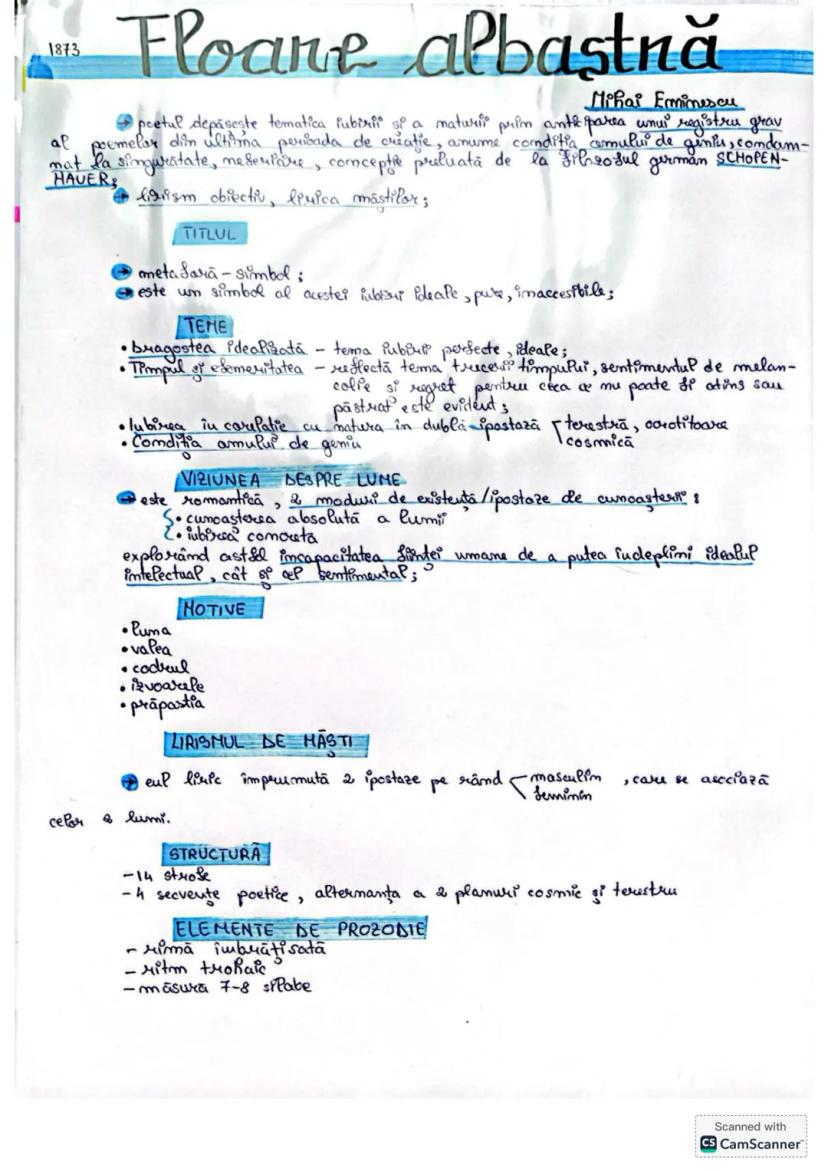 1873
Floare albastră
Mihai Eminescu
→ poetul depășește tematica iubirii și a maturii prin anticiparea unui registru grav
al poemelor din ultima perioada de creație, anume condiția omului de geniu, condam-
nat la singurătate, nefericire, concepție preluată de la filozoful german SCHOPEN-
HAUER;
→ lirism obiectiv, lirica măștilor;
TITLUL
→ metaforă - simbol;
→ este un simbol al acestei iubiri ideale, pure, inaccesibile;
TEME
• bragostea idealizată - tema iubirii perfecte, ideale;
• Timpul și efemeritatea - reflectă tema trecerii timpului, sentimentul de melan-
colie și regret pentru ceea ce nu poate fi atins sau
păstrat este evident;
• Iubirea în corelație cu natura în dublă ipostază terestră, ocrotitoare
cosmică
• Condiția omului de geniu
VIZIUNEA DESPRE LUME
→ este romantică, 2 moduri de existență/ipostaze de cunoașterii:
• cunoașterea absolută a lumii
• iubirea concretă
explorând astfel incapacitatea ființei umane de a putea îndeplini idealul
intelectual, cât și cel sentimental;
MOTIVE
• luna
• valea
• codrul
• izvoarele
• prăpastia
LIRISMUL DE MĂȘTI
→ eul liric împrumută 2 ipostaze pe rând masculin, care se asociază
feminin
celor 2 lumi.
STRUCTURĂ
- 14 strofe
- 4 secvențe poetice, alternanța a 2 planuri cosmic și terestru
ELEMENTE DE PROZODIE
- rimă îmbrățișată
- ritm trohaic
- măsură 7-8 silabe
Scanned with
CS CamScanner